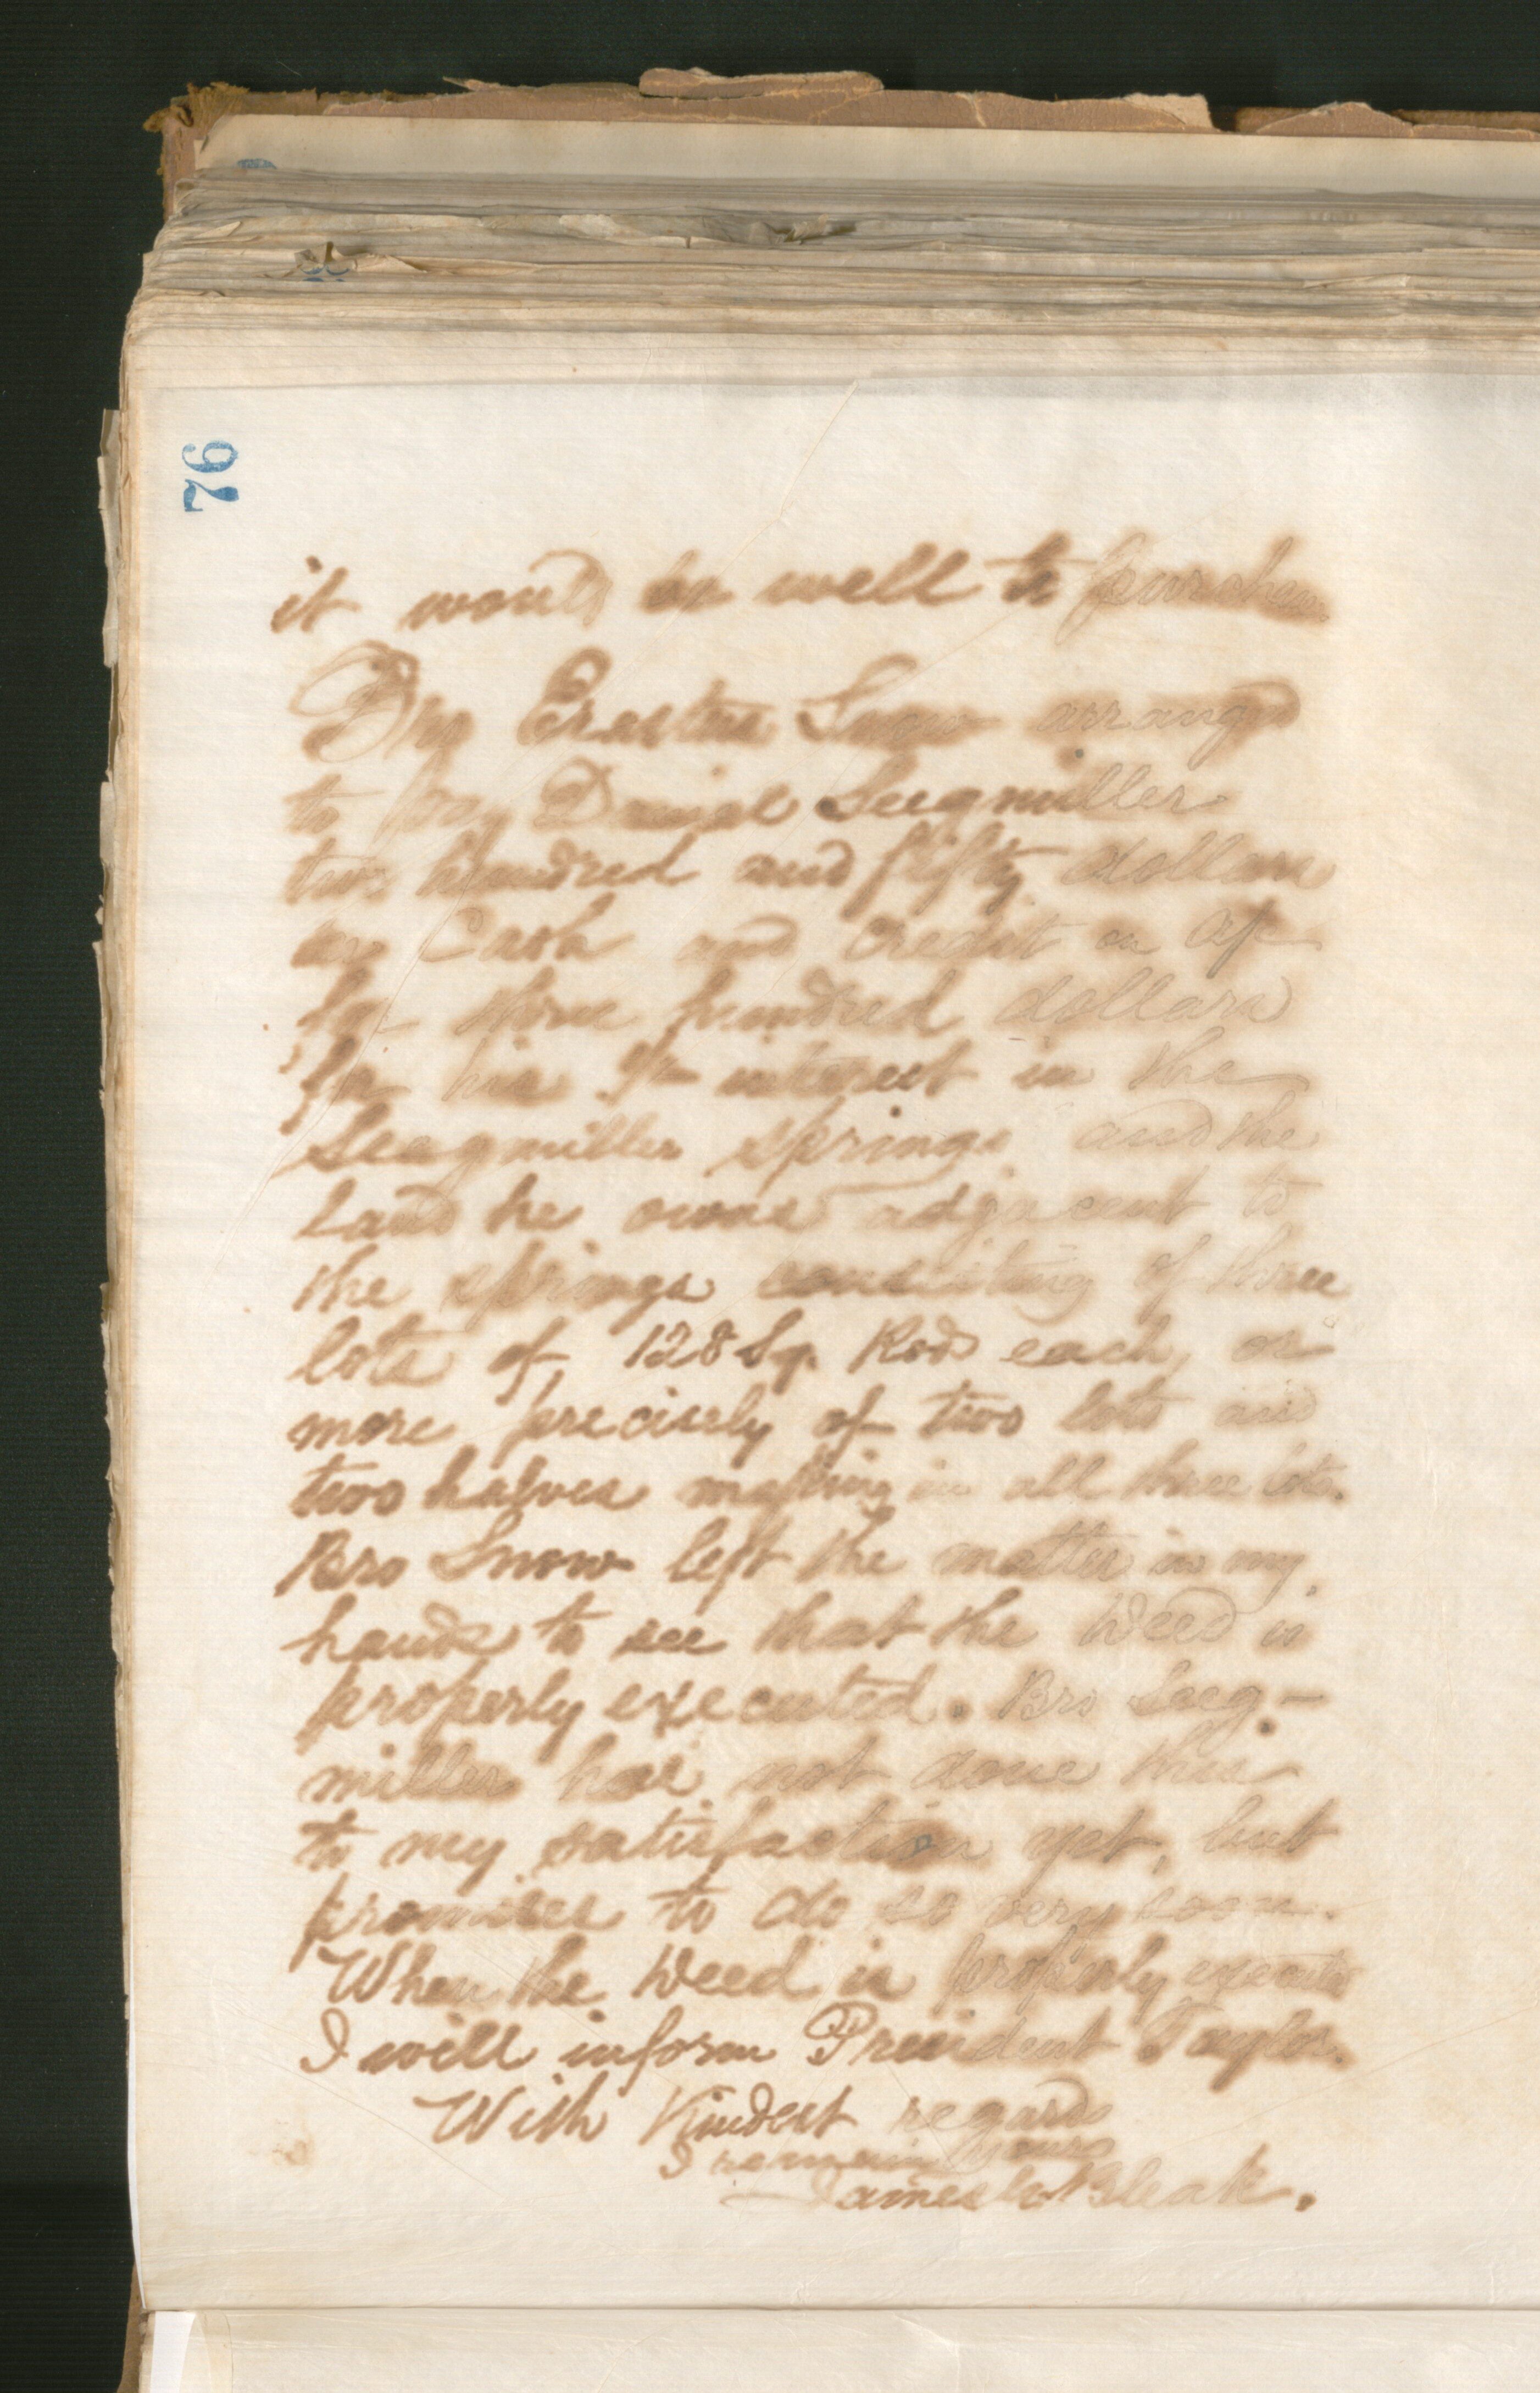 76
it would be well to purchase
Bro Erastus Snow arranged
to pay Daniel Seegmiller
two hundred and fifty dollars
in Cash and credit on a/c
for three hundred dollars
for his interest in the
Seegmiller springs and the
Land he owns adjacent to
the springs consisting of three
lots of 128 Sq. Rods each, or
more precisely of two lots and
two halves making in all three lots.
Bro Snow left the matter in my
hands to see that the Deed is
properly executed. Bro Seeg-
miller has not done this
to my satisfaction yet, but
promises to do so very soon.
When the Deed is properly executed
I will inform President Taylor.
With Kindest regards
I remain yours
James G Bleak.